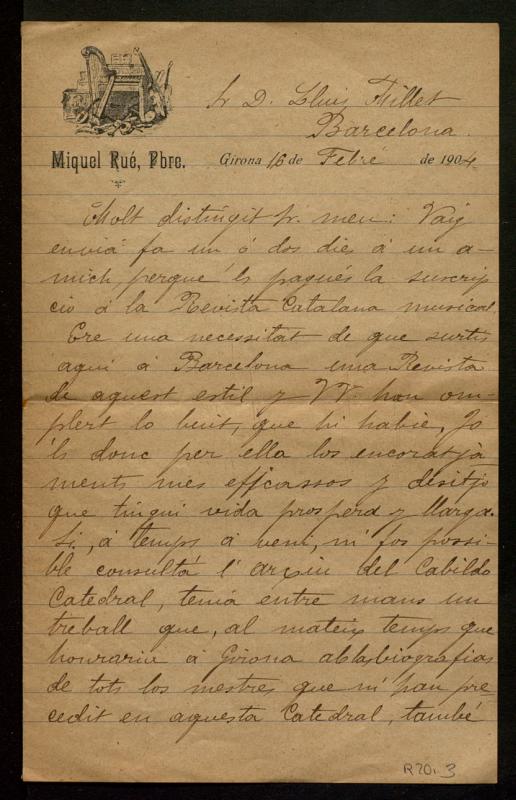 Sr D. Lluis Millet
Barcelona.
Miquel Rué, Pbre. Girona 16 de Febré de 1904
Molt distingit Sr. meu: Vaig
enviá fa un ó dos dies á un a-
mich, perque 'ls pagués la suscrip
ció á la Revista Catalana musical.
Ere una necessitat de que surtis
aqui á Barcelona una Revista
de aquest estil y VV. han om-
plert lo buit, que hi habie, Jo
'ls donc per ella los encoratjá
ments més eficassos y desitjo
que tingui vida prospera y llarga.
Si, á temps á veni, m' fos possi-
ble consultá l' arxiu del Cabildo
Catedral, tenia entre mans un
treball que, al mateix temps que
honraria á Girona ab las biografias
de tots los mestres que m' han pre
cedit en aquesta Catedral, també
R701.3